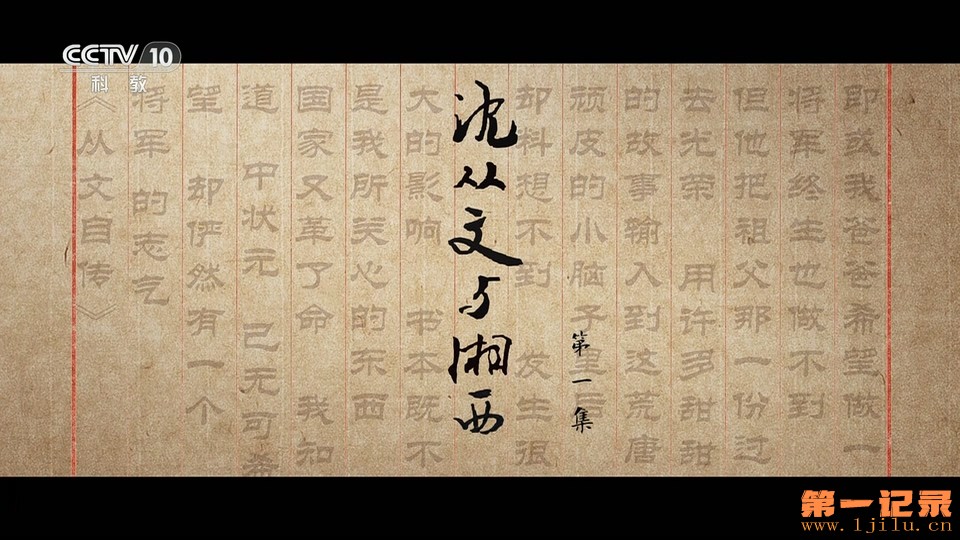 CCTV 10
科教
沈从文与湘西
第一集
即或我爸爸希望做一
将军终生也做不到
但他把祖父那一份过
去光荣 用许多甜甜
的故事输入到这荒唐
顽皮的小脑子里后
却料想不到 发生很
大的影响 书本既不
是我所关心的东西
国家又革了命 我知
道 中状元 已无可希
望 却俨然有一个
将军 的志气
《从文自传》
第一记录
www.1jilu.cn